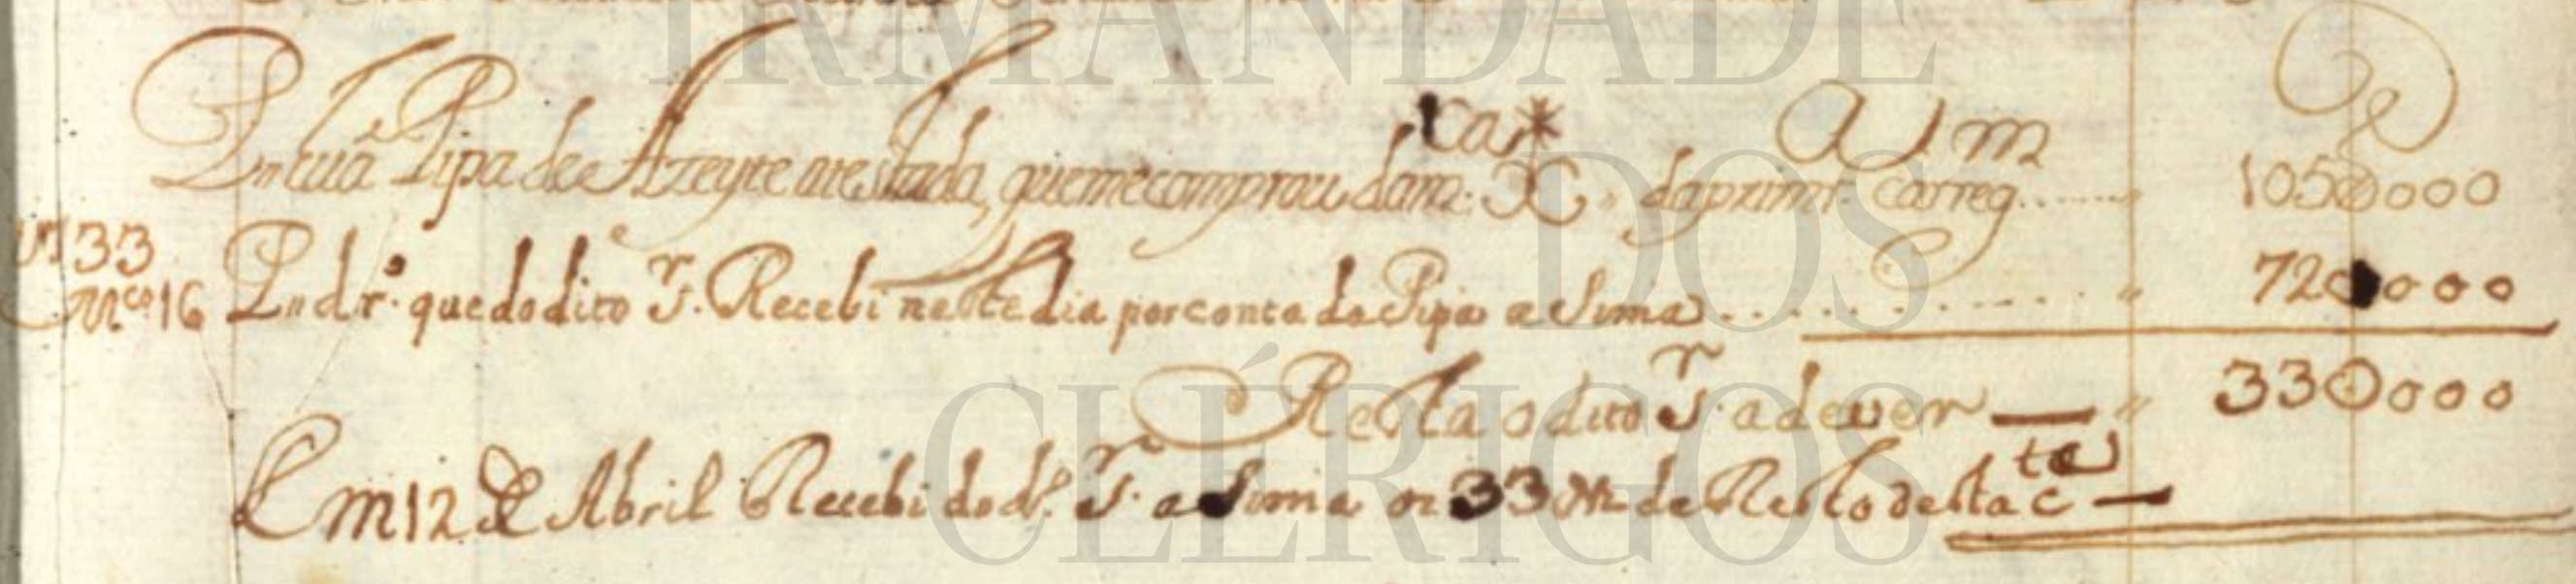 IRMANDADE
DOS
CLÉRIGOS
P hũa Pipa de Azeyte atestada, que me comprou da m.ca X da prim.ra carreg.am " 105@000
1733
M.co 16 P dr.o que do dito S.r Recebi neste dia por conta da Pipa a Sima " 720000
Resta o dito S.r a dever — " 330000
Em 12 de Abril Recebi do d.o S.r a Sima os 33 M de Resto desta c.ta —